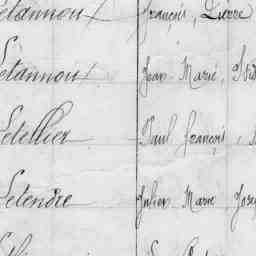 Letannoux François, Pierre
Letannoux Jean Marie,
Letellier Paul François,
Letendre Julien Marie